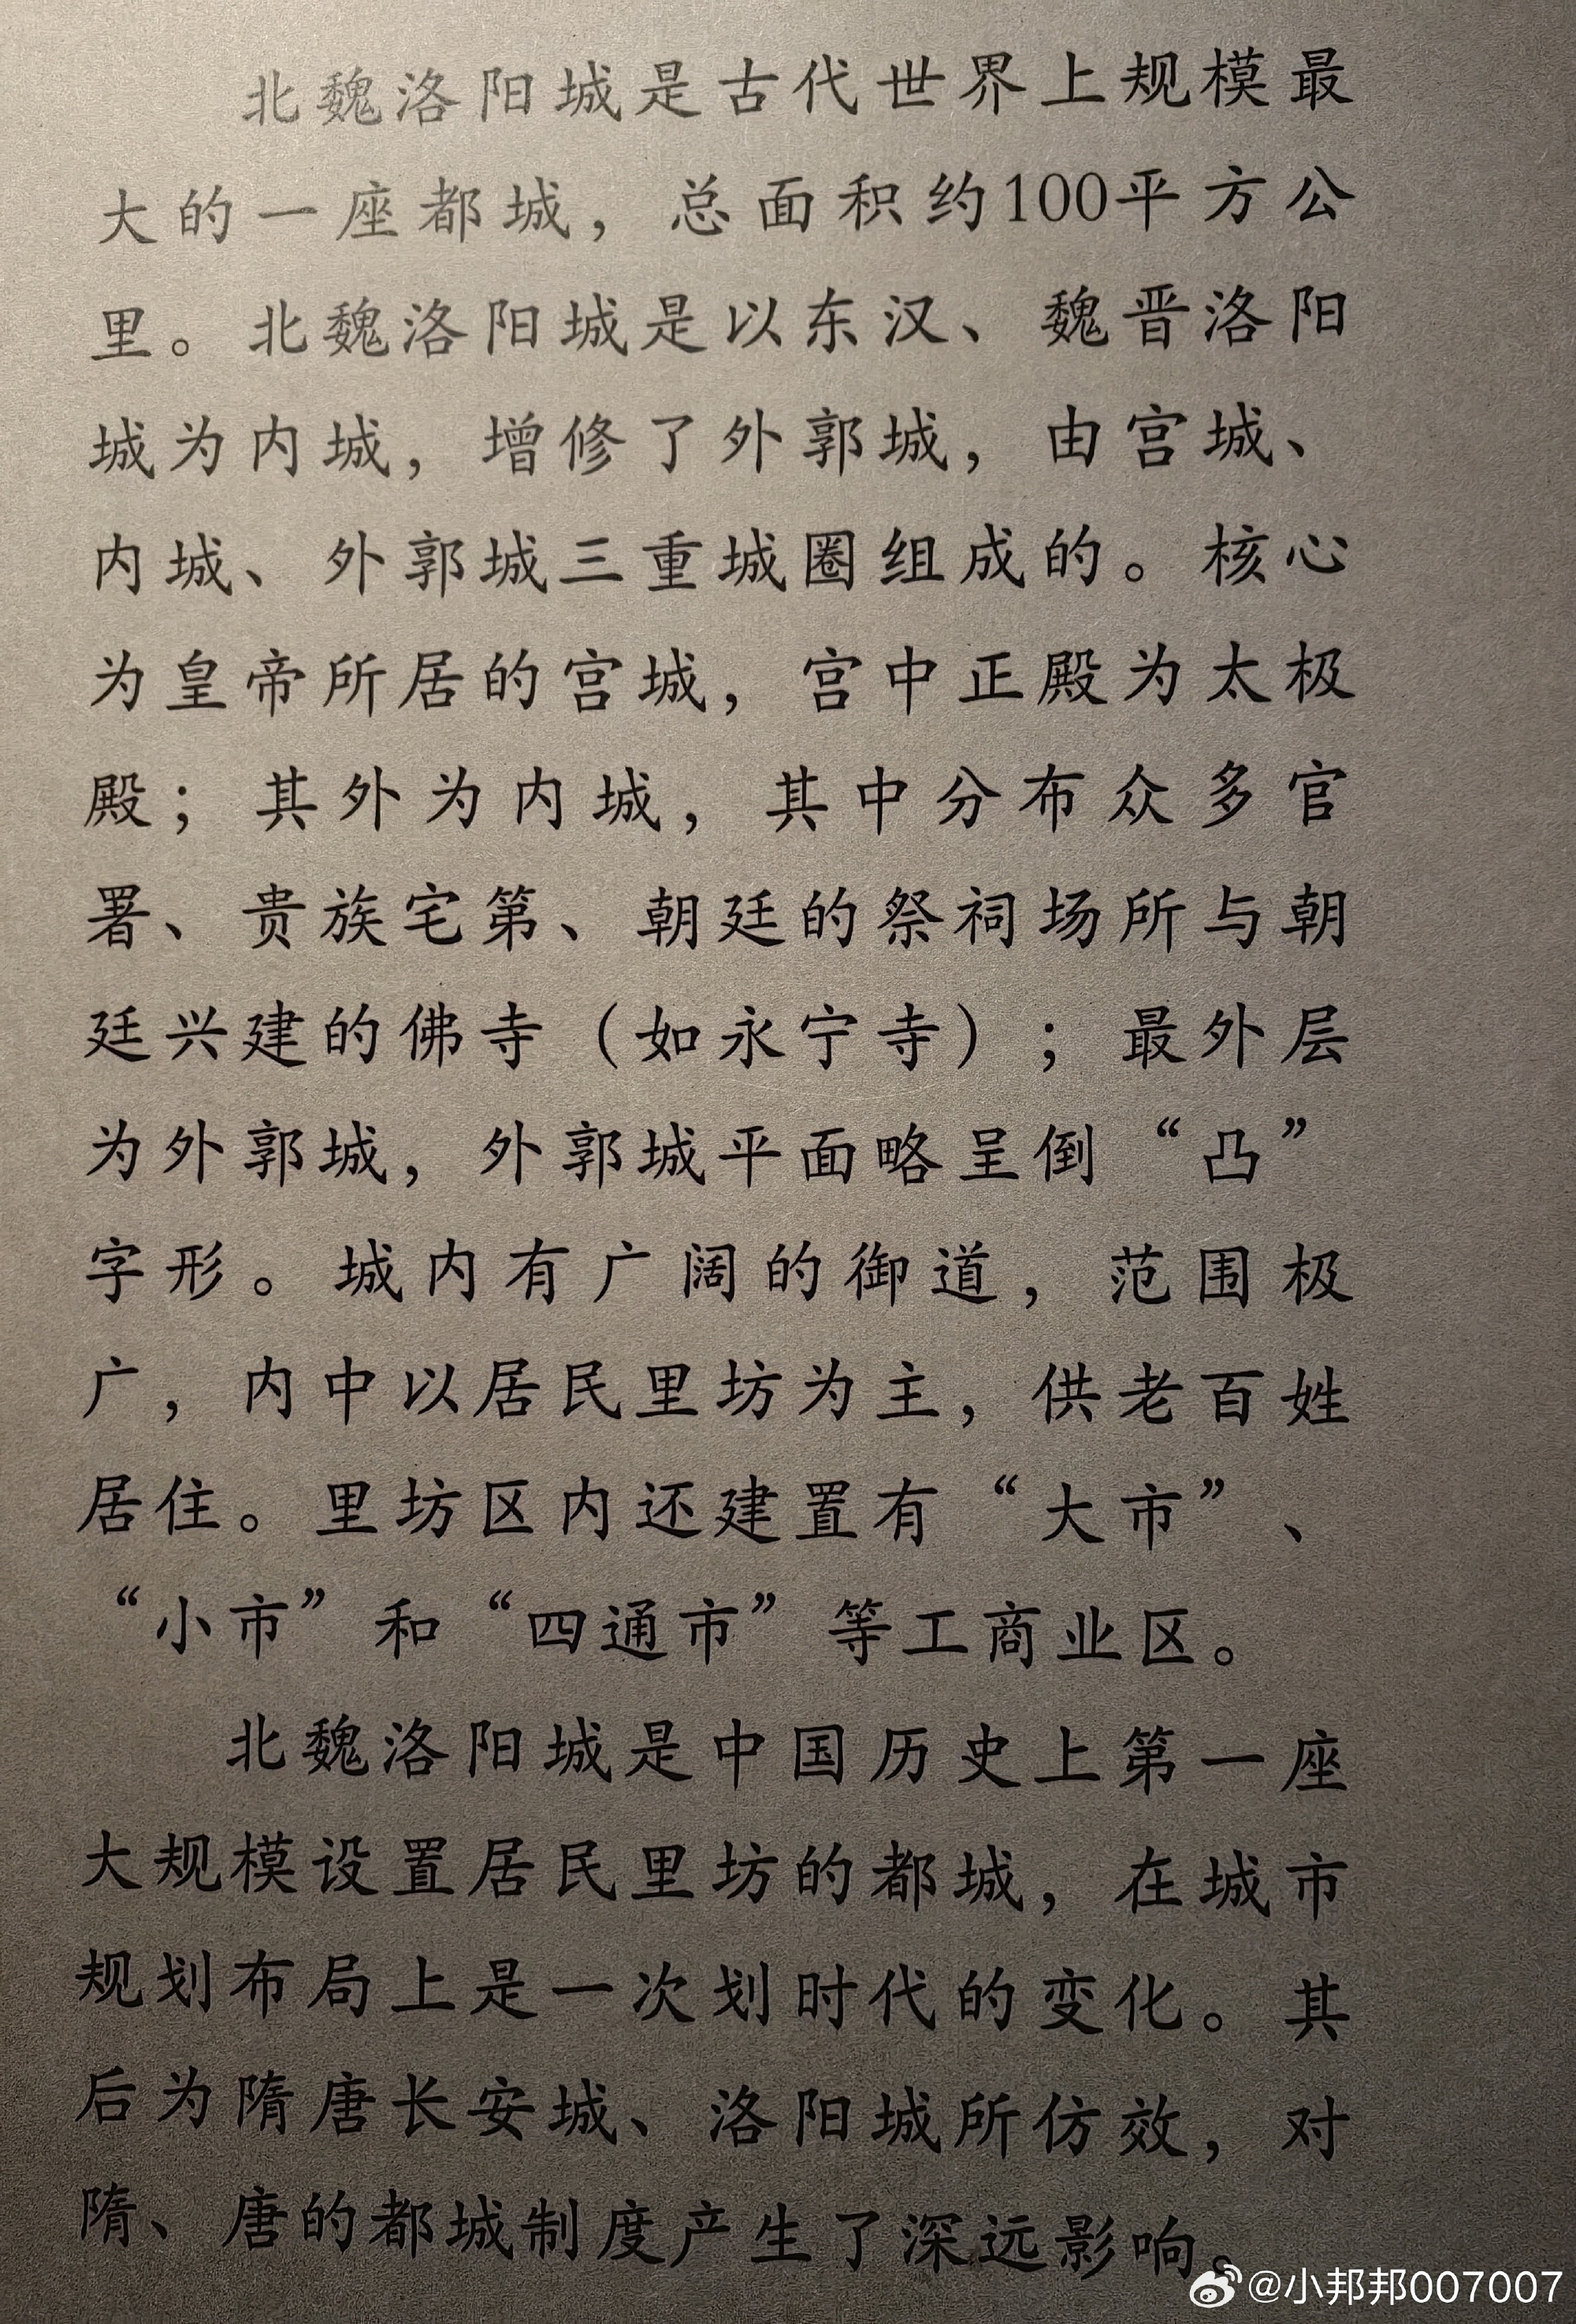 北魏洛阳城是古代世界上规模最
大的一座都城，总面积约100平方公
里。北魏洛阳城是以东汉、魏晋洛阳
城为内城，增修了外郭城，由宫城、
内城、外郭城三重城圈组成的。核心
为皇帝所居的宫城，宫中正殿为太极
殿；其外为内城，其中分布众多官
署、贵族宅第、朝廷的祭祠场所与朝
廷兴建的佛寺（如永宁寺）；最外层
为外郭城，外郭城平面略呈倒“凸”
字形。城内有广阔的御道，范围极
广，内中以居民里坊为主，供老百姓
居住。里坊区内还建置有“大市”、
“小市”和“四通市”等工商业区。
北魏洛阳城是中国历史上第一座
大规模设置居民里坊的都城，在城市
规划布局上是一次划时代的变化。其
后为隋唐长安城、洛阳城所仿效，对
隋、唐的都城制度产生了深远影响。
@小邦邦007007